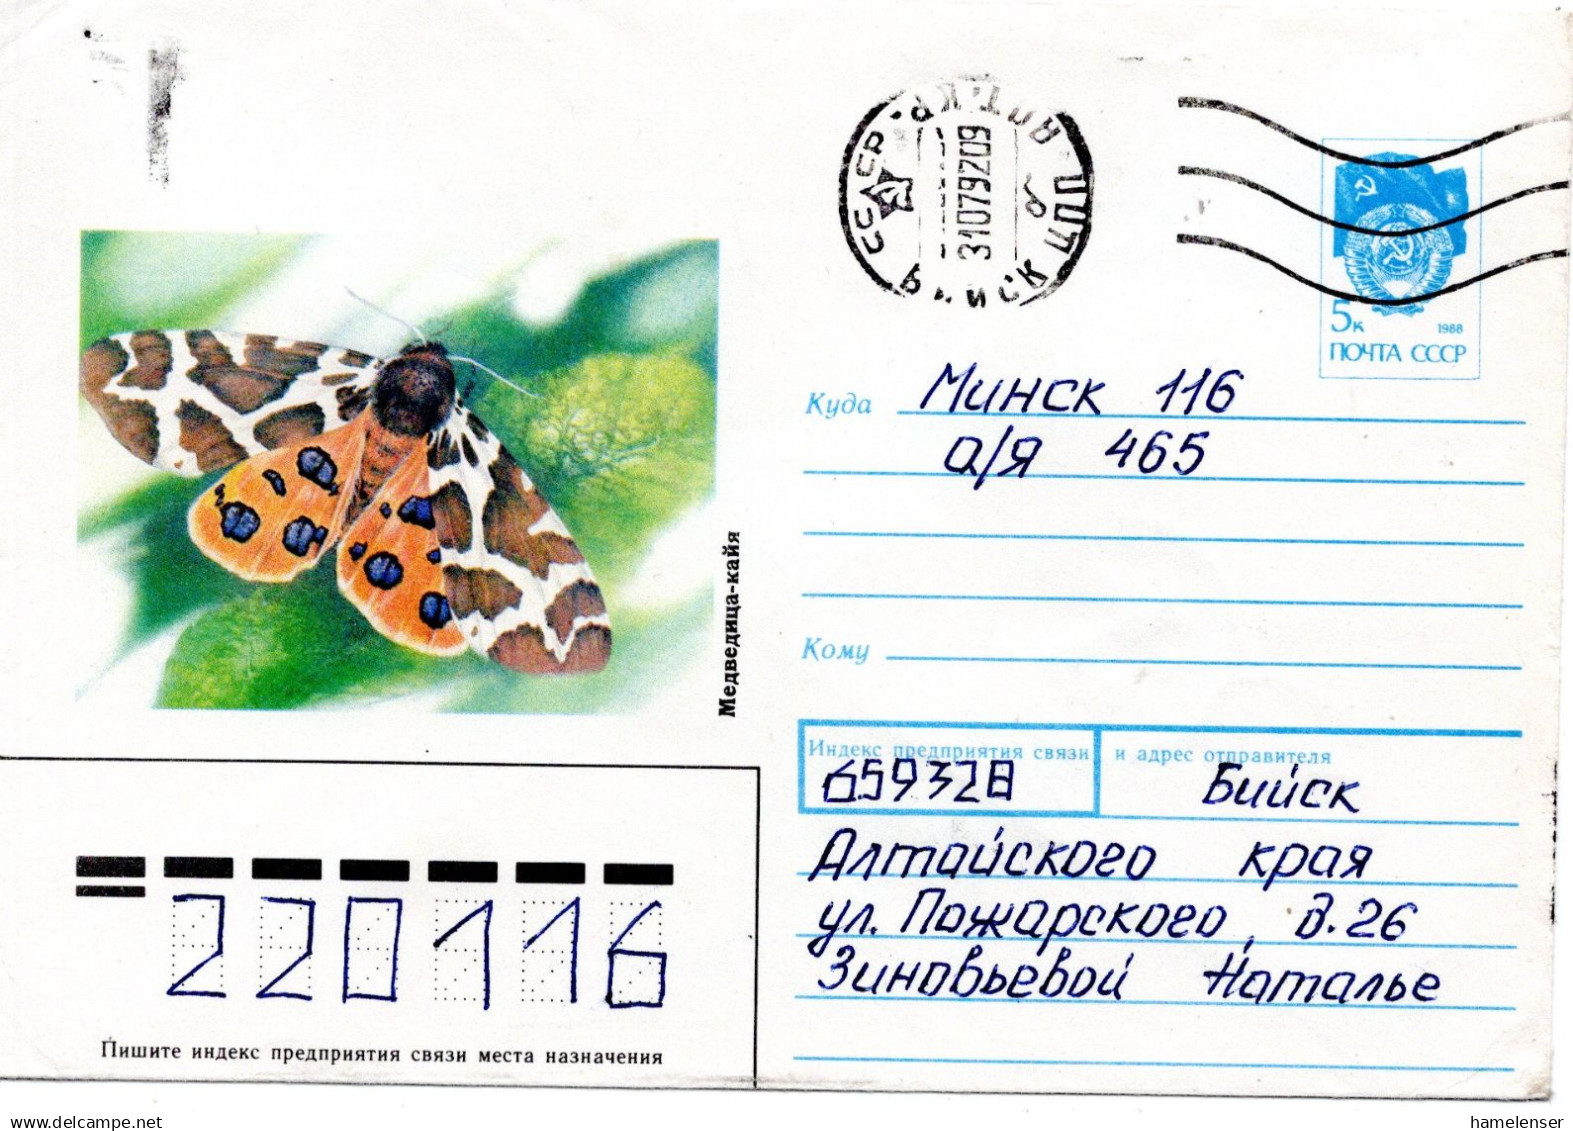 СССР · АЛТ. КР. · ППП
БИЙСК
31079209
5к 1988
ПОЧТА СССР
Куда Минск 116
а/я 465
Кому
Медведица-кайя
Индекс предприятия связи и адрес отправителя
659328 Бийск
Алтайского края
ул. Пожарского, д. 26
Зиновьевой Наталье
220116
Пишите индекс предприятия связи места назначения
hamelenser